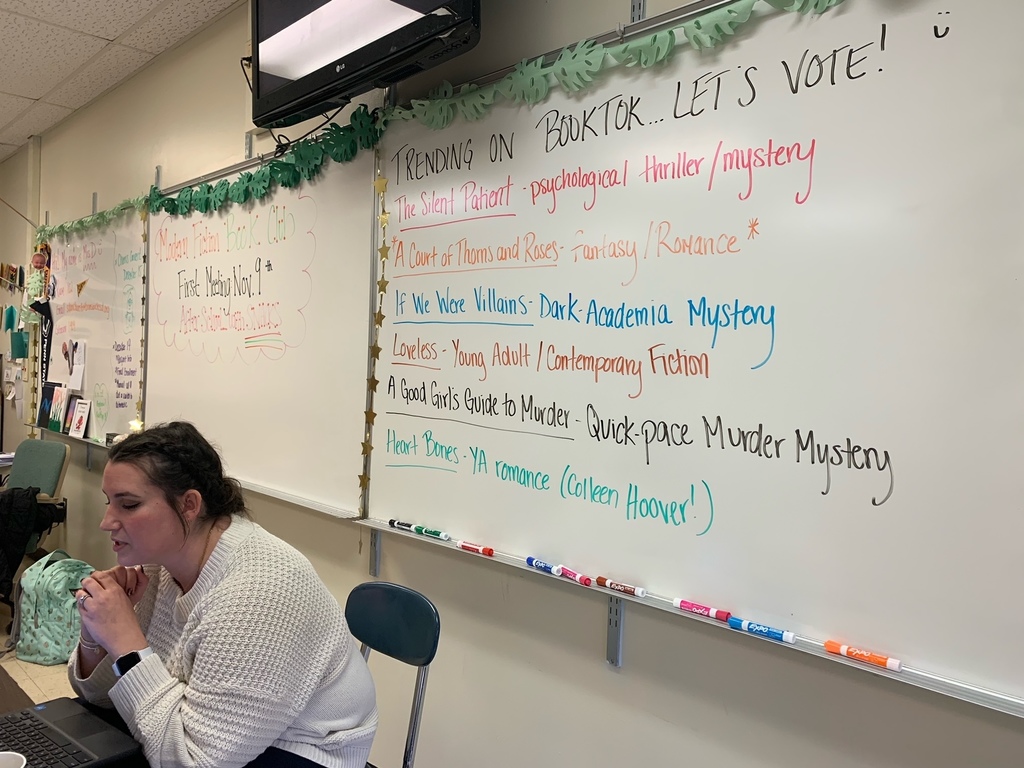 LG
TRENDING ON BOOKTOK... LET'S VOTE! :)
The Silent Patient - psychological thriller/mystery
*A Court of Thorns and Roses - Fantasy/Romance*
If We Were Villains - Dark-Academia Mystery
Loveless - Young Adult/Contemporary Fiction
A Good Girls Guide to Murder - Quick-pace Murder Mystery
Heart Bones - YA romance (Colleen Hoover!)
Modern Fiction Book Club
First Meeting Nov. 9th
EXPO
EXPO
EXPO